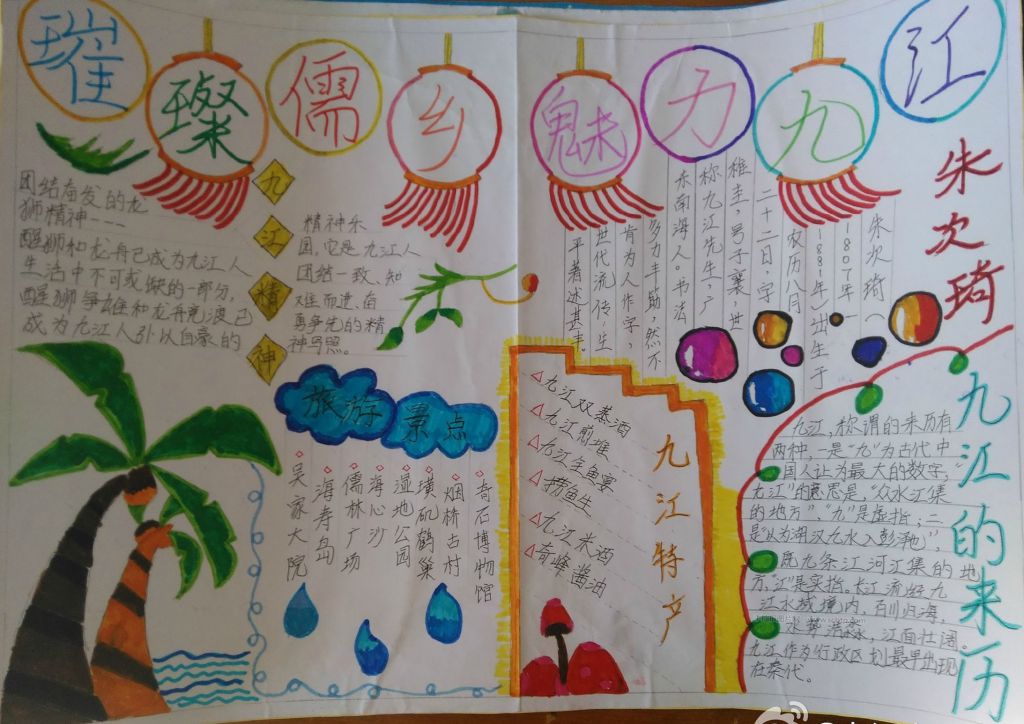 璀璨儒乡魅力九江
九江精神
团结奋发的龙
狮精神---
醒狮和龙舟已成为九江人
生活中不可或缺的一部分,
醒狮争雄和龙舟竞渡已
成为九江人引以自豪的
精神乐
园,它是九江人
团结一致、知
难而进、奋
勇争先的精
神写照。
朱次琦
朱次琦(
1807年—
1881年)出生于
农历八月
二十二日,字
稚圭,号子襄,世
称九江先生,广
东南海人。书法
多力丰筋,然不
肯为人作字,
世代流传,生
平著述甚丰。
旅游景点
奇石博物馆
烟桥古村
璜矶鹤巢
湿地公园
海心沙
儒林广场
海寿岛
吴家大院
九江特产
九江双蒸酒
九江煎堆
九江全鱼宴
捞鱼生
九江米酒
奇峰酱油
九江的来历
九江,称谓的来历有
两种,一是"九"为古代中
国人认为最大的数字,
"九江"的意思是,"众水汇集
的地方","九"是虚指;二
是以为湖汉九水入彭泽",
既九条江河汇集的地
方,"江"是实指。长江流经九
江水域境内,百川归海,
水势浩淼,江面壮阔。
九江作为行政区划最早出现
在秦代。